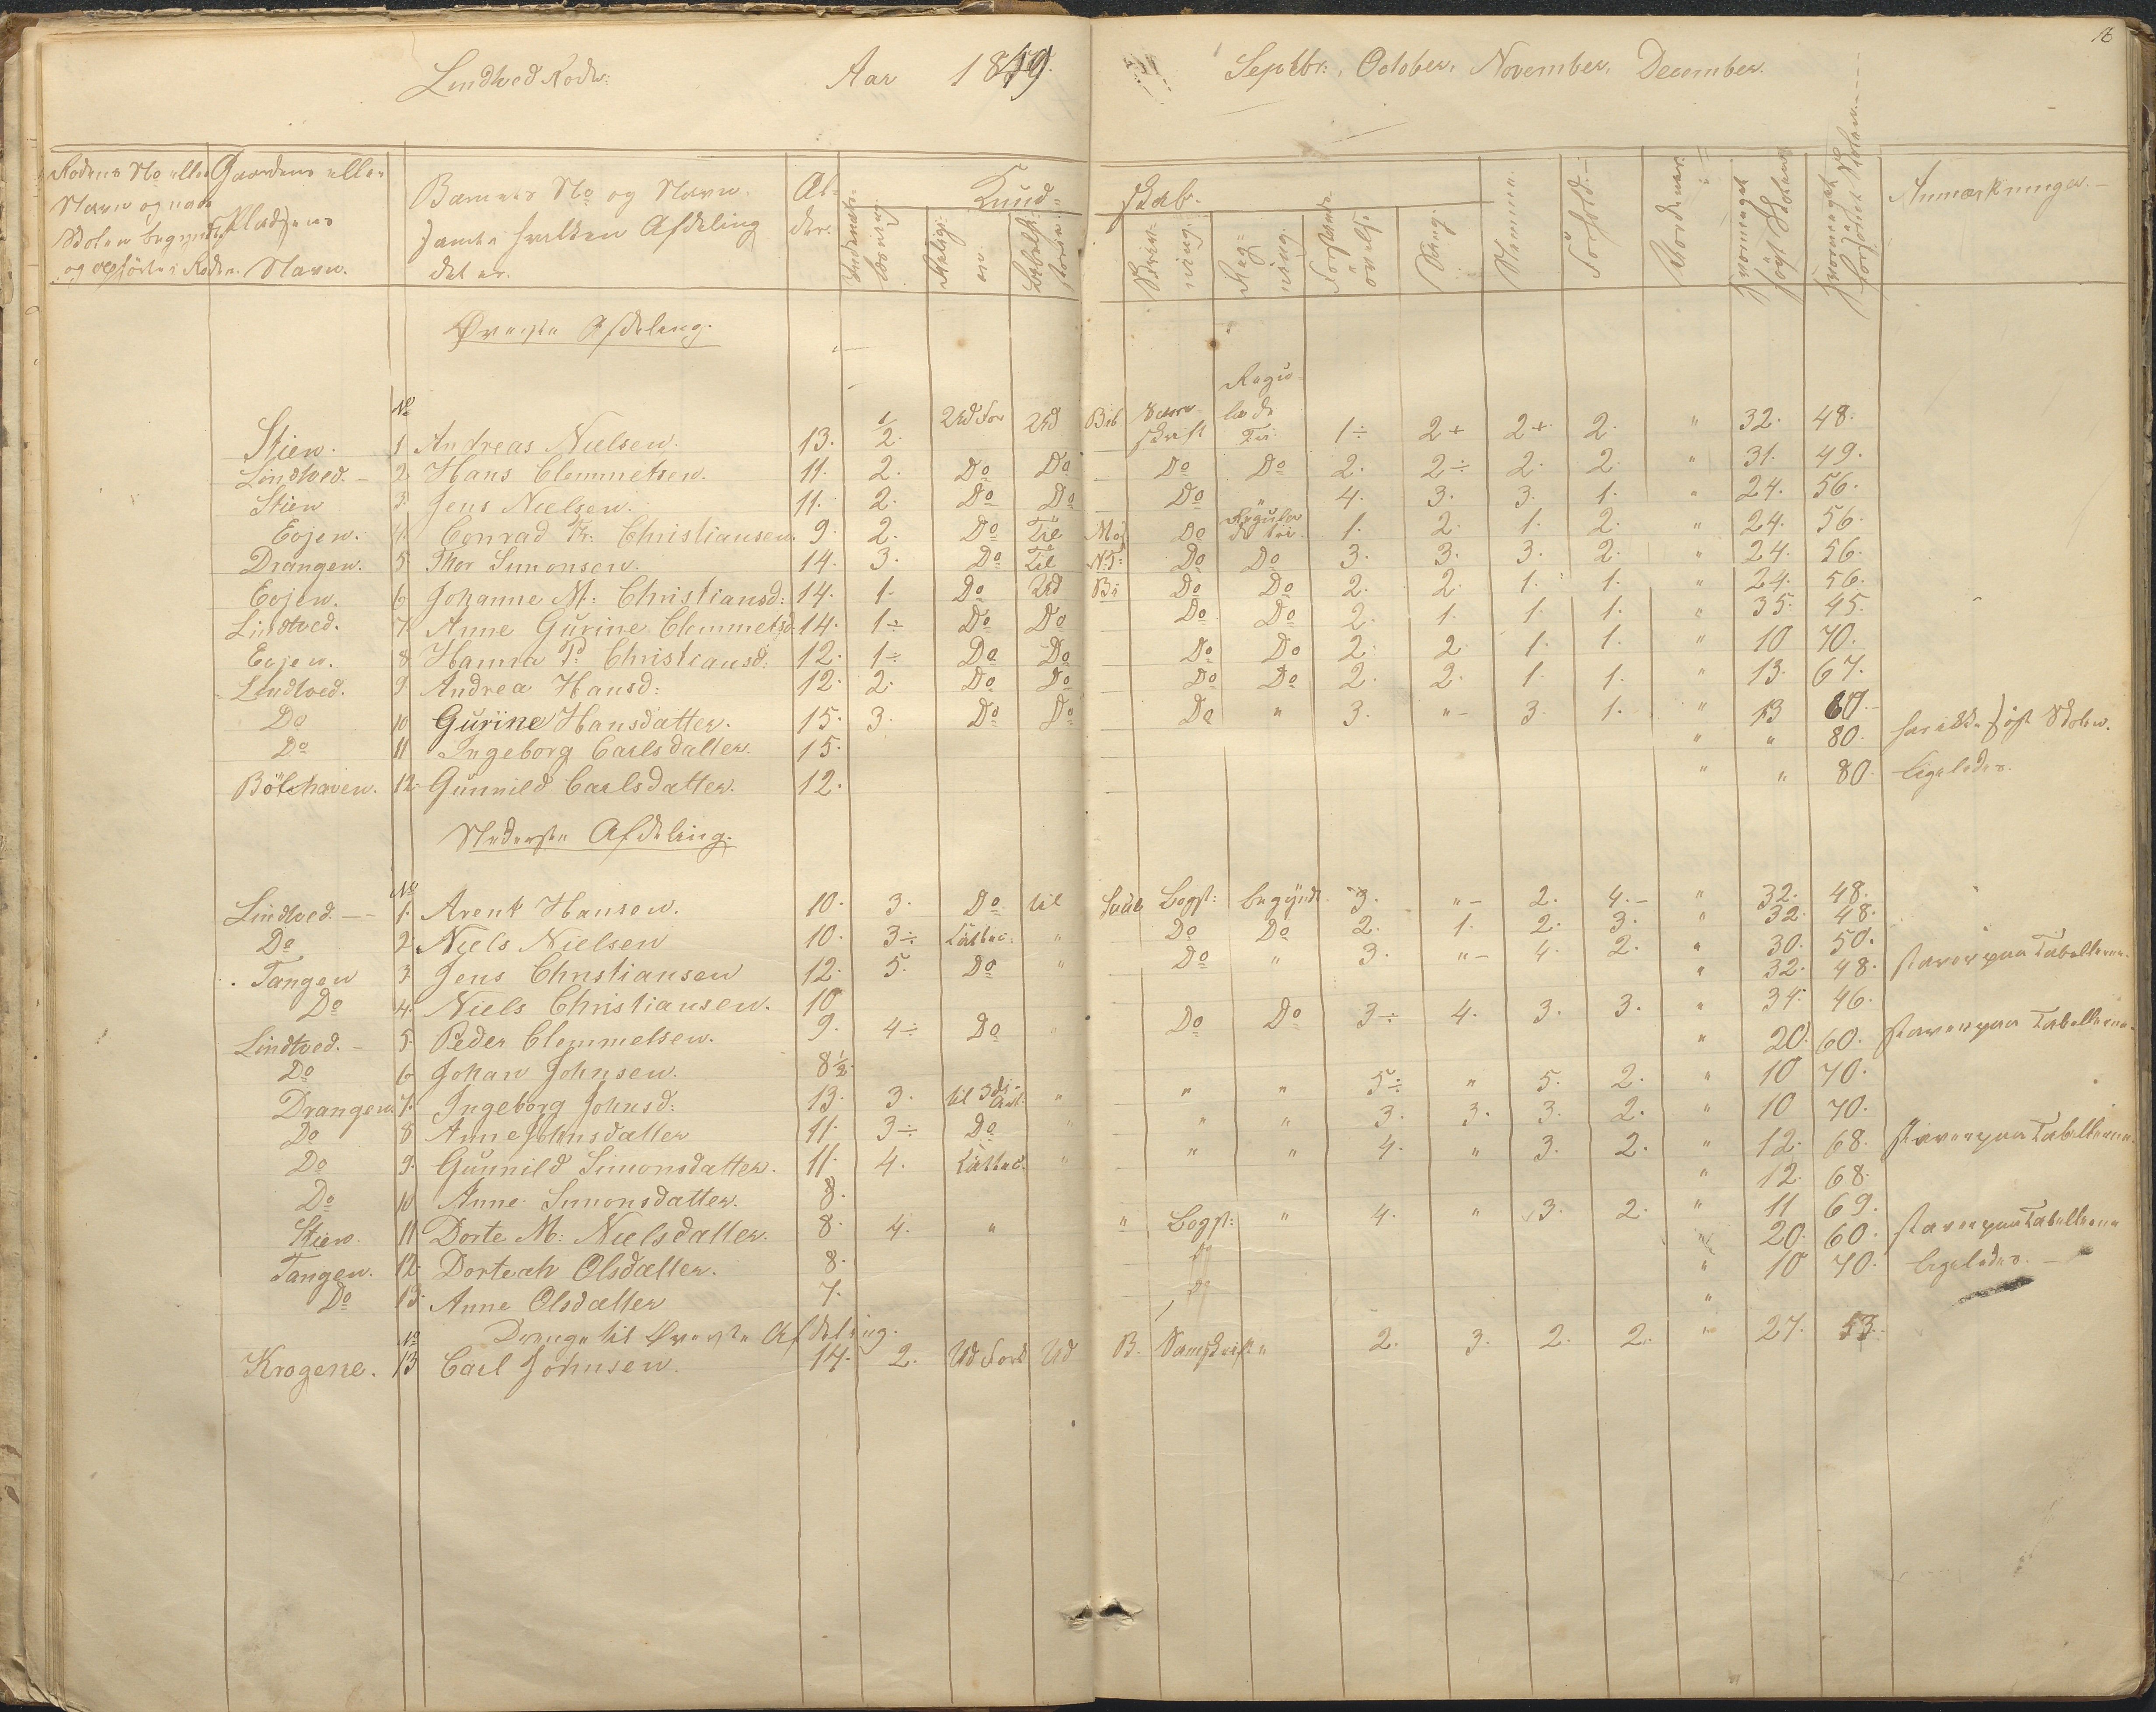 16
Lindtved Rode: Aar 1849. Septbr:, October, November, December.
Rodens No eller Navn og naar Skolen begyndte og ophörte i Roden.
Gaardens eller Pladsens Navn.
Barnets No og Navn, samt i hvilken Afdeling det er.
Alder.
Kundskab.
Indenadslæsning.
Religion.
Bibelhistorie.
Skrivning.
Regning.
Forstandsövelse
Sang.
Nemme.
Forhold.
Hvormeget sögt Skolen
Hvormeget forsömt Skolen
Anmærkninger.
Øverste Afdeling.
No
Stien. 1 Andreas Nielsen. 13. 2. Ud For Ud Bib. Sam skrift Regula de Tri 1÷ 2+ 2+ 2. " 32. 48.
Lindtved. 2 Hans Clemmetsen. 11. 2. Do Do Do Do 2. 2÷ 2. 2. " 31. 49.
Stien 3. Jens Nielsen. 11. 2. Do Do Do " 4. 3. 3. 1. " 24. 56.
Eojen. 4. Conrad Fr. Christiansen. 9. 2. Do Til Mos Do Regula de tri. 1. 2. 1. 2. " 24. 56.
Drangen. 5. Thor Simonsen. 14. 3. Do Til N.T: Do Do 3. 3. 3. 2. " 24. 56.
Eojen. 6 Johanne M: Christiansd: 14. 1. Do Ud Bi Do Do 2. 2. 1. 1. " 24. 56.
Lindtved. 7. Anne Gurine Clemmetsd. 14. 1÷ Do Do Do Do 2. 1. 1. 1. " 35. 45.
Eojen. 8 Hanna P. Christiansd: 12. 1÷ Do Do Do Do 2. 2. 1. 1. " 10 70.
Lindtved. 9 Andrea Hansd: 12. 2. Do Do Do Do 2. 2. 1. 1. " 13. 67.
Do 10 Gurine Hansdatter. 15. 3. Do Do Do " 3. " 3. 1. " 13 67.
Do 11 Ingeborg Carlsdatter. 15. " " 80. har ikke sögt Skolen.
Bölehaven. 12. Gunnild Carlsdatter. 12. " " 80. ligeledes.
Nederste Afdeling.
No
Lindtved. 1. Arent Hansen. 10. 3. Do til Saul Bogst: begynd. 3. " 2. 4. " 32. 48.
Do 2. Niels Nielsen 10. 3÷ Do Do 2. 1. 2. 3. " 32. 48.
Tangen 3 Jens Christiansen 12. 5. Do " Do " 3. " 4. 2. " 30. 50.
Do 4. Niels Christiansen. 10 " 32. 48. staver paa Tabellerne.
Lindtved. 5. Peder Clemmetsen. 9. 4÷ Do " Do Do 3÷ 4. 3. 3. " 34. 46.
Do 6 Johan Johnsen. 8½. " 20. 60. staver paa Tabellerne.
Drangen. 7. Ingeborg Johnsd: 13. 3. til 3die Art. " " " 5÷ " 5. 2. " 10 70.
Do 8 Anne Johnsdatter 11. 3÷ Do " " " 3. 3. 3. 2. " 10 70.
Do 9. Gunnild Simonsdatter. 11. 4. " " " 4. " 3. 2. " 12. 68.
Do 10 Anne Simonsdatter. 8. " 12. 68. staver paa Tabellerne.
Stien. 11 Dorte M: Nielsdatter. 8. 4. " " Bogst: " 4. " 3. 2. " 11 69.
Tangen. 12. Dorteah Olsdatter. 8. Do " 20. 60. staver paa Tabellerne
Do 13. Anne Olsdatter 7. Do " 10 70. ligeledes.
Drenge til Øverste Afdeling.
No
Krogene. 13 Carl Johnsen. 14. 2. Ud Ford Ud B. Samskrift " 2. 3. 2. 2. " 27. 53.